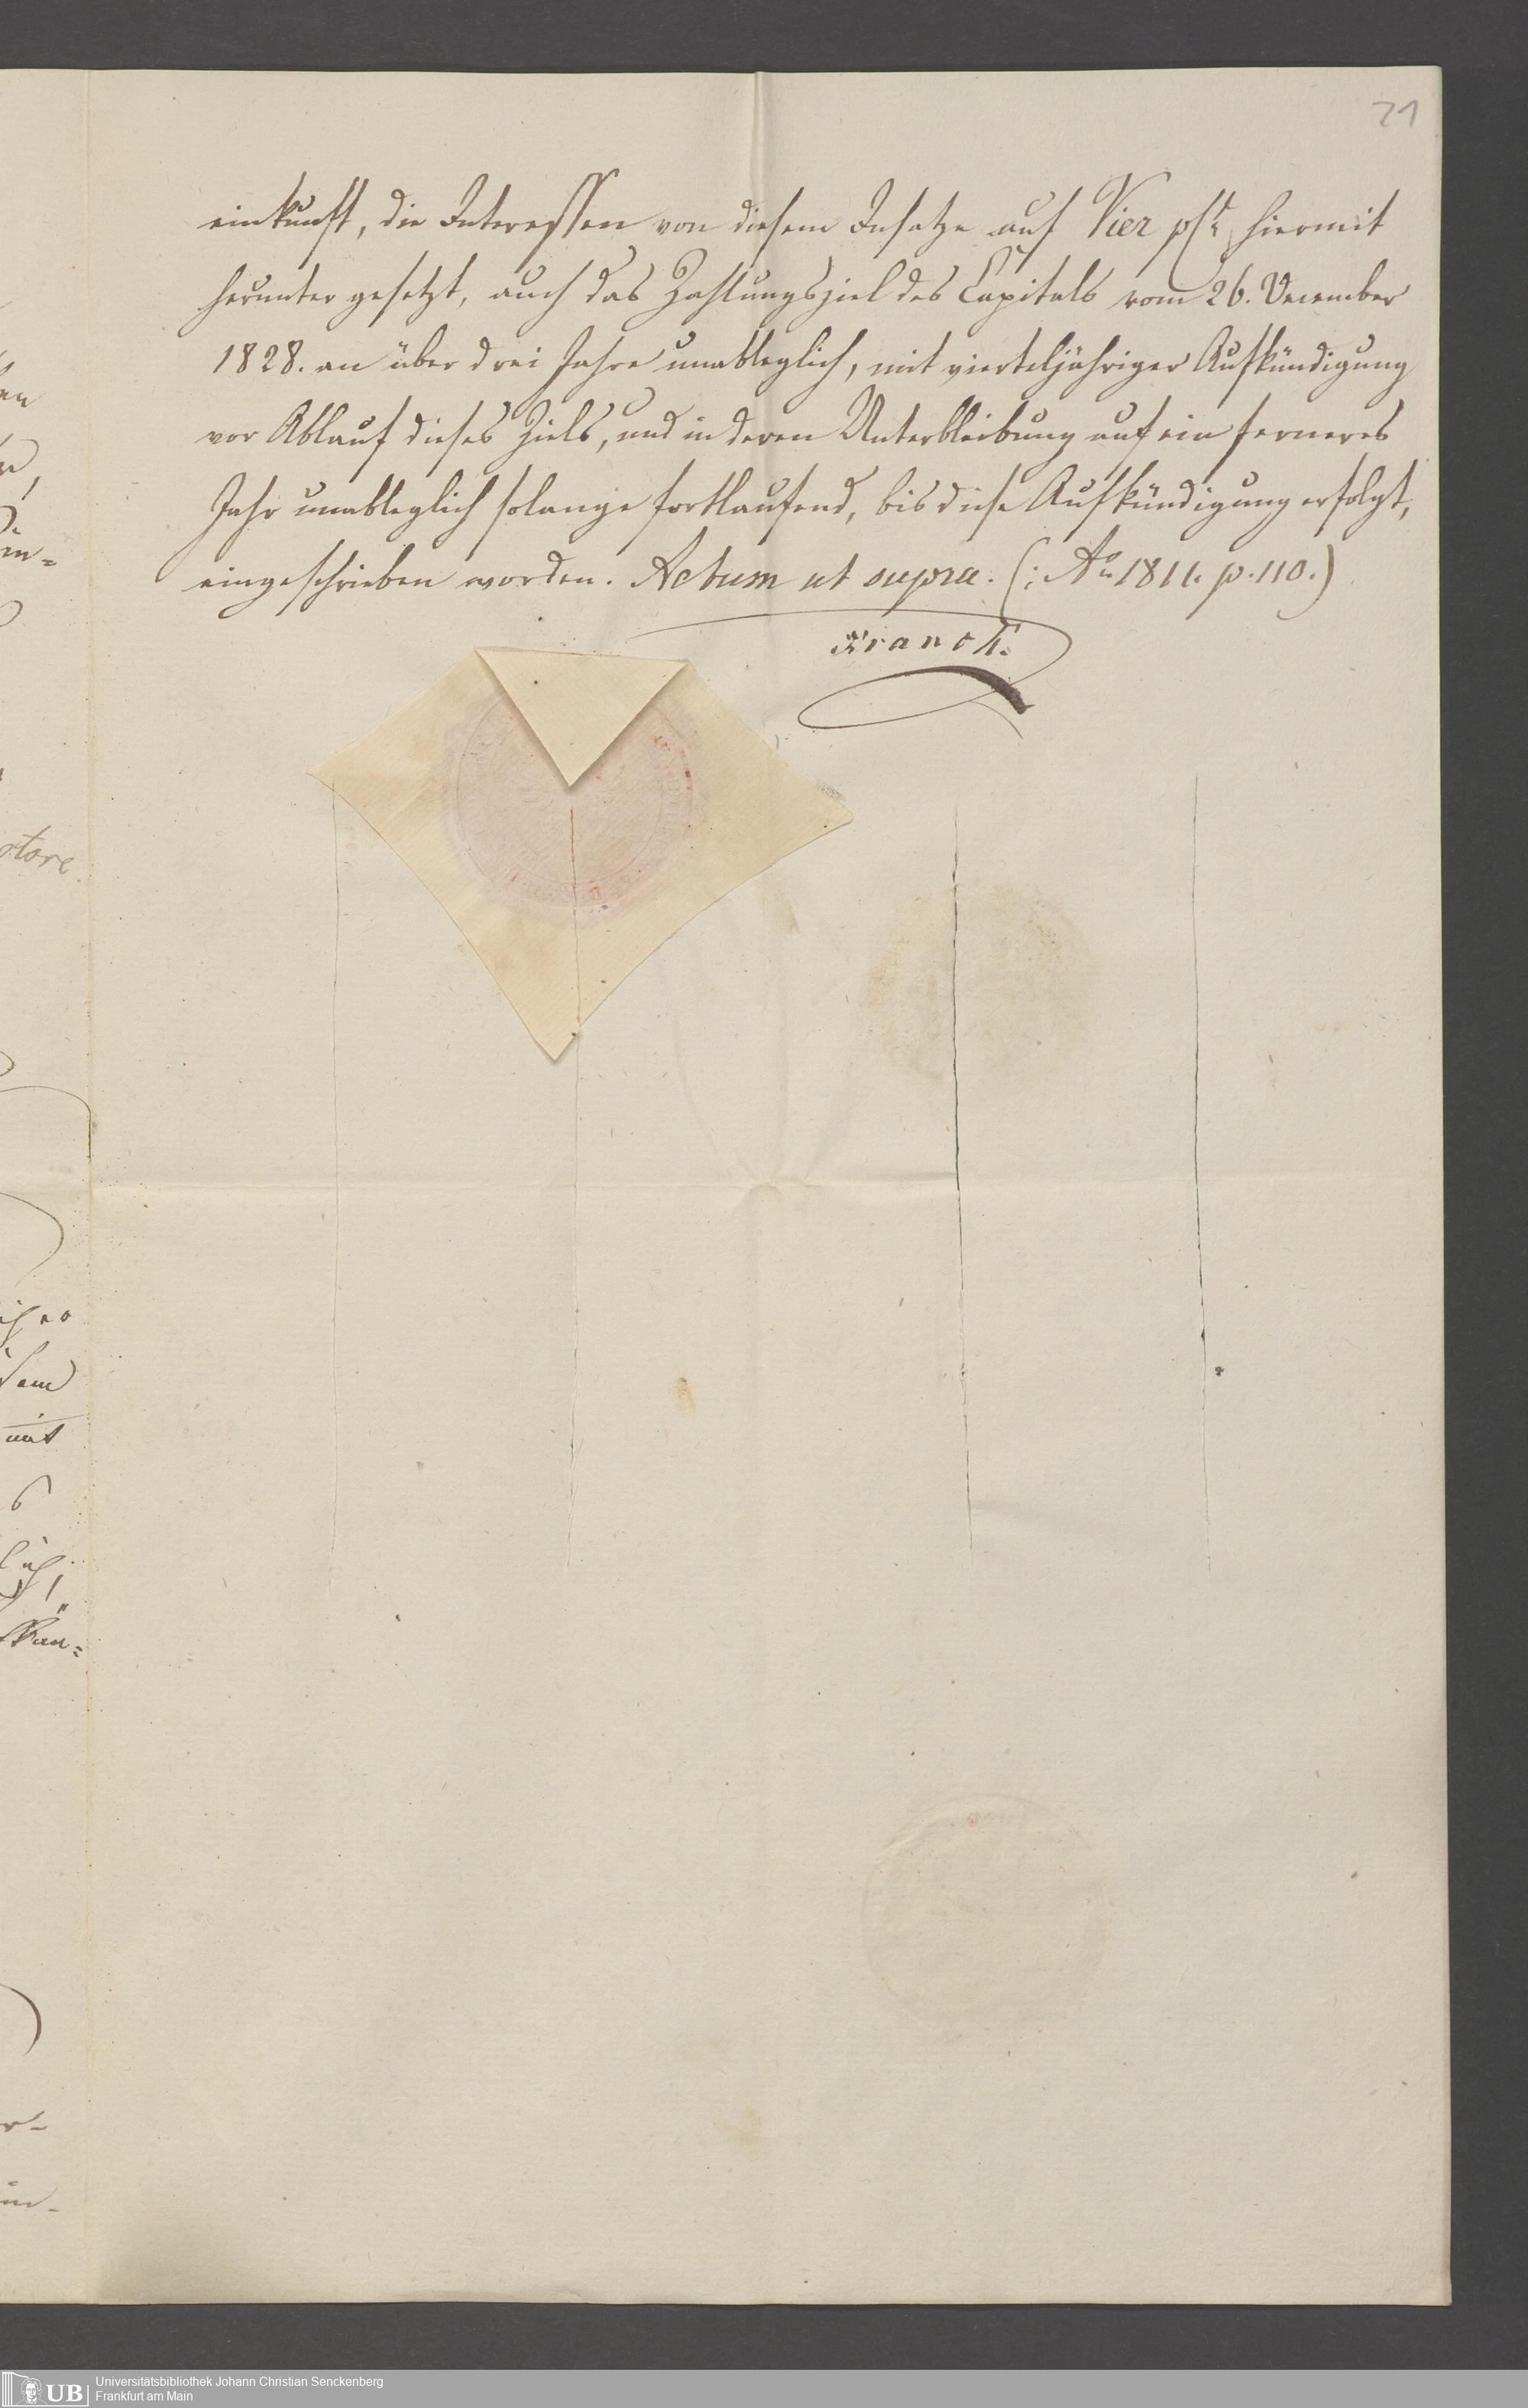 21
einkunft, die Interessen von diesem Insatze auf Vier pCt. hiermit
herunter gesetzt, auch das Zahlungsziel des Capitals vom 26. December
1828. an über drei Jahre unableglich, mit vierteljähriger Aufkündigung
vor Ablauf dieses Ziels, und in deren Unterbleibung auf ein ferneres
Jahr unableglich solange fortlaufend, bis diese Aufkündigung erfolgt,
eingeschrieben worden. Actum ut supra. (: Ao. 1811. p. 110.)
Franck.
UB
Universitätsbibliothek Johann Christian Senckenberg
Frankfurt am Main